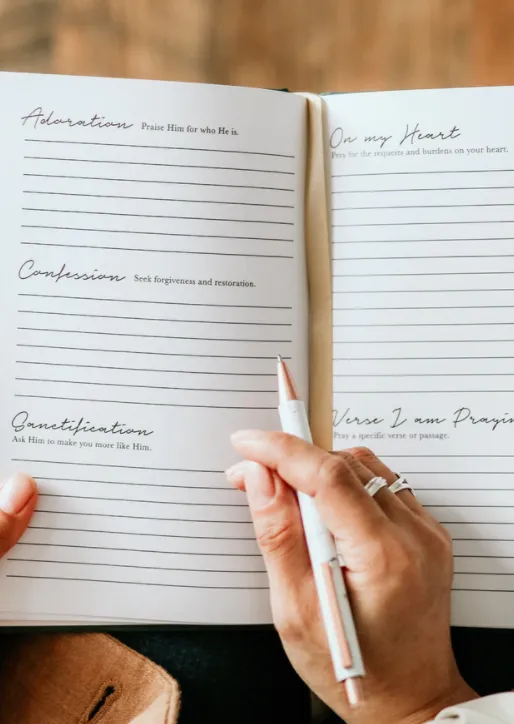 Adoration Praise Him for who He is.
Confession Seek forgiveness and restoration.
Sanctification
Ask Him to make you more like Him.
On my Heart
Pray for the requests and burdens on your heart.
Verse I am
Pray a specific verse or passage.